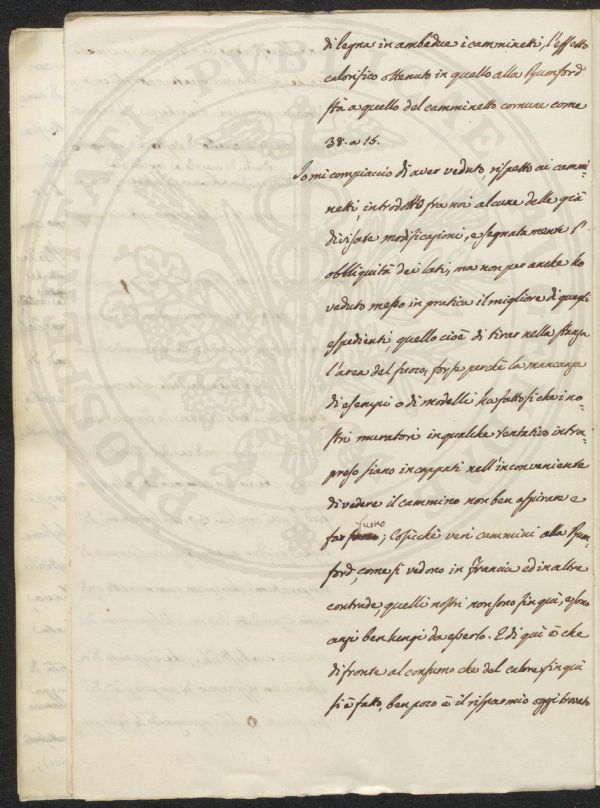 di legna in ambedue i camminetti, l'effetto
calorifico ottenuto in quello alla Rumford
stà a quello del camminetto comune come
38. a 15.
Io mi compiaccio di aver veduto, rispetto ai cammi-
netti, introdotto fra noi alcune delle già
divisate modificazioni, e segnatamente l'
obbliquità dei lati, ma non per anche ho
veduto messo in pratica il migliore di quegli
espedienti, quello cioè di tirar nella stanza
l'area del fuoco, forse perchè la mancanza
di esempi o di modelli ha fatto si che i no-
stri muratori in qualche tentativo intra-
preso siano incappati nell'inconveniente
di vedere il cammino non ben aspirare e
far fumo; Cosicchè veri cammini alla Rum-
ford, come si vedono in Francia ed in altre
contrade, quelli nostri non sono fin quì, e sono
anzi ben lungi da esserlo. E di quì è che
di fronte al consumo che del calore fin quì
si è fatto, ben poco è il risparmio oggi trovato
PVBLICAE